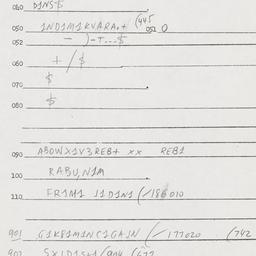 040 D1NS$
050 1ND1M1KVARA.+ (445
051 0
052 — )-T...$
060 + / $
070 $
080 $
090 ABOWX1V3REB+ xx REB1
100 RABU,N1M
110 FR1M1 J1D1N1 (/186010
901 G1KF1M1NC1GAJN (/177020 (742
902 SX1D1S+1/904 (677